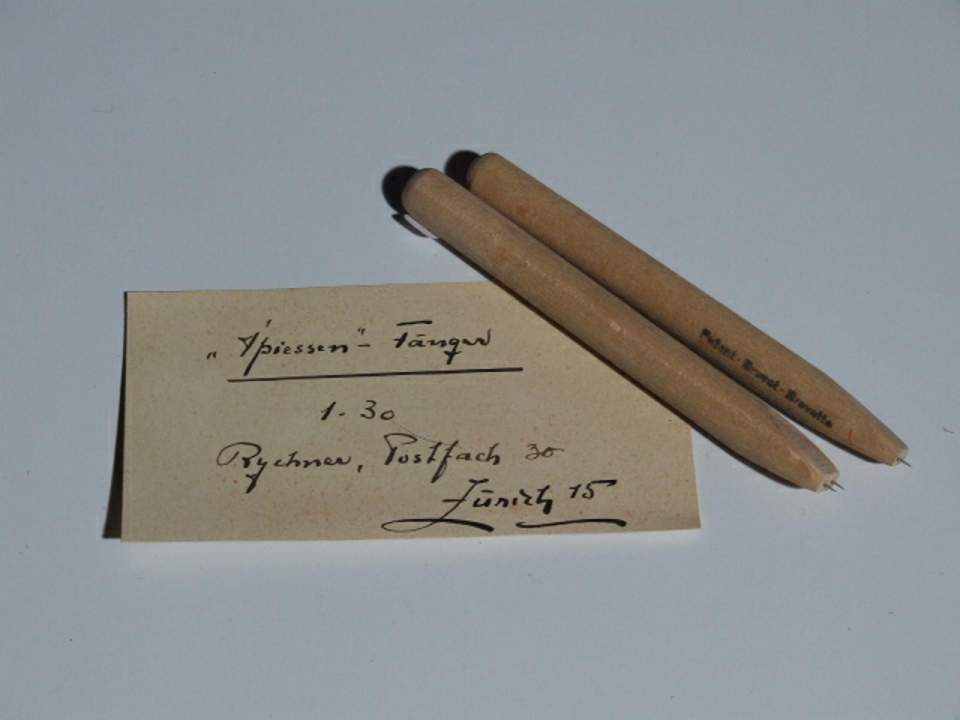 „Spiessen"-Fänger
1.30
Rychner, Postfach 30
Zürich 15
Patent · Brevet · Brevetto